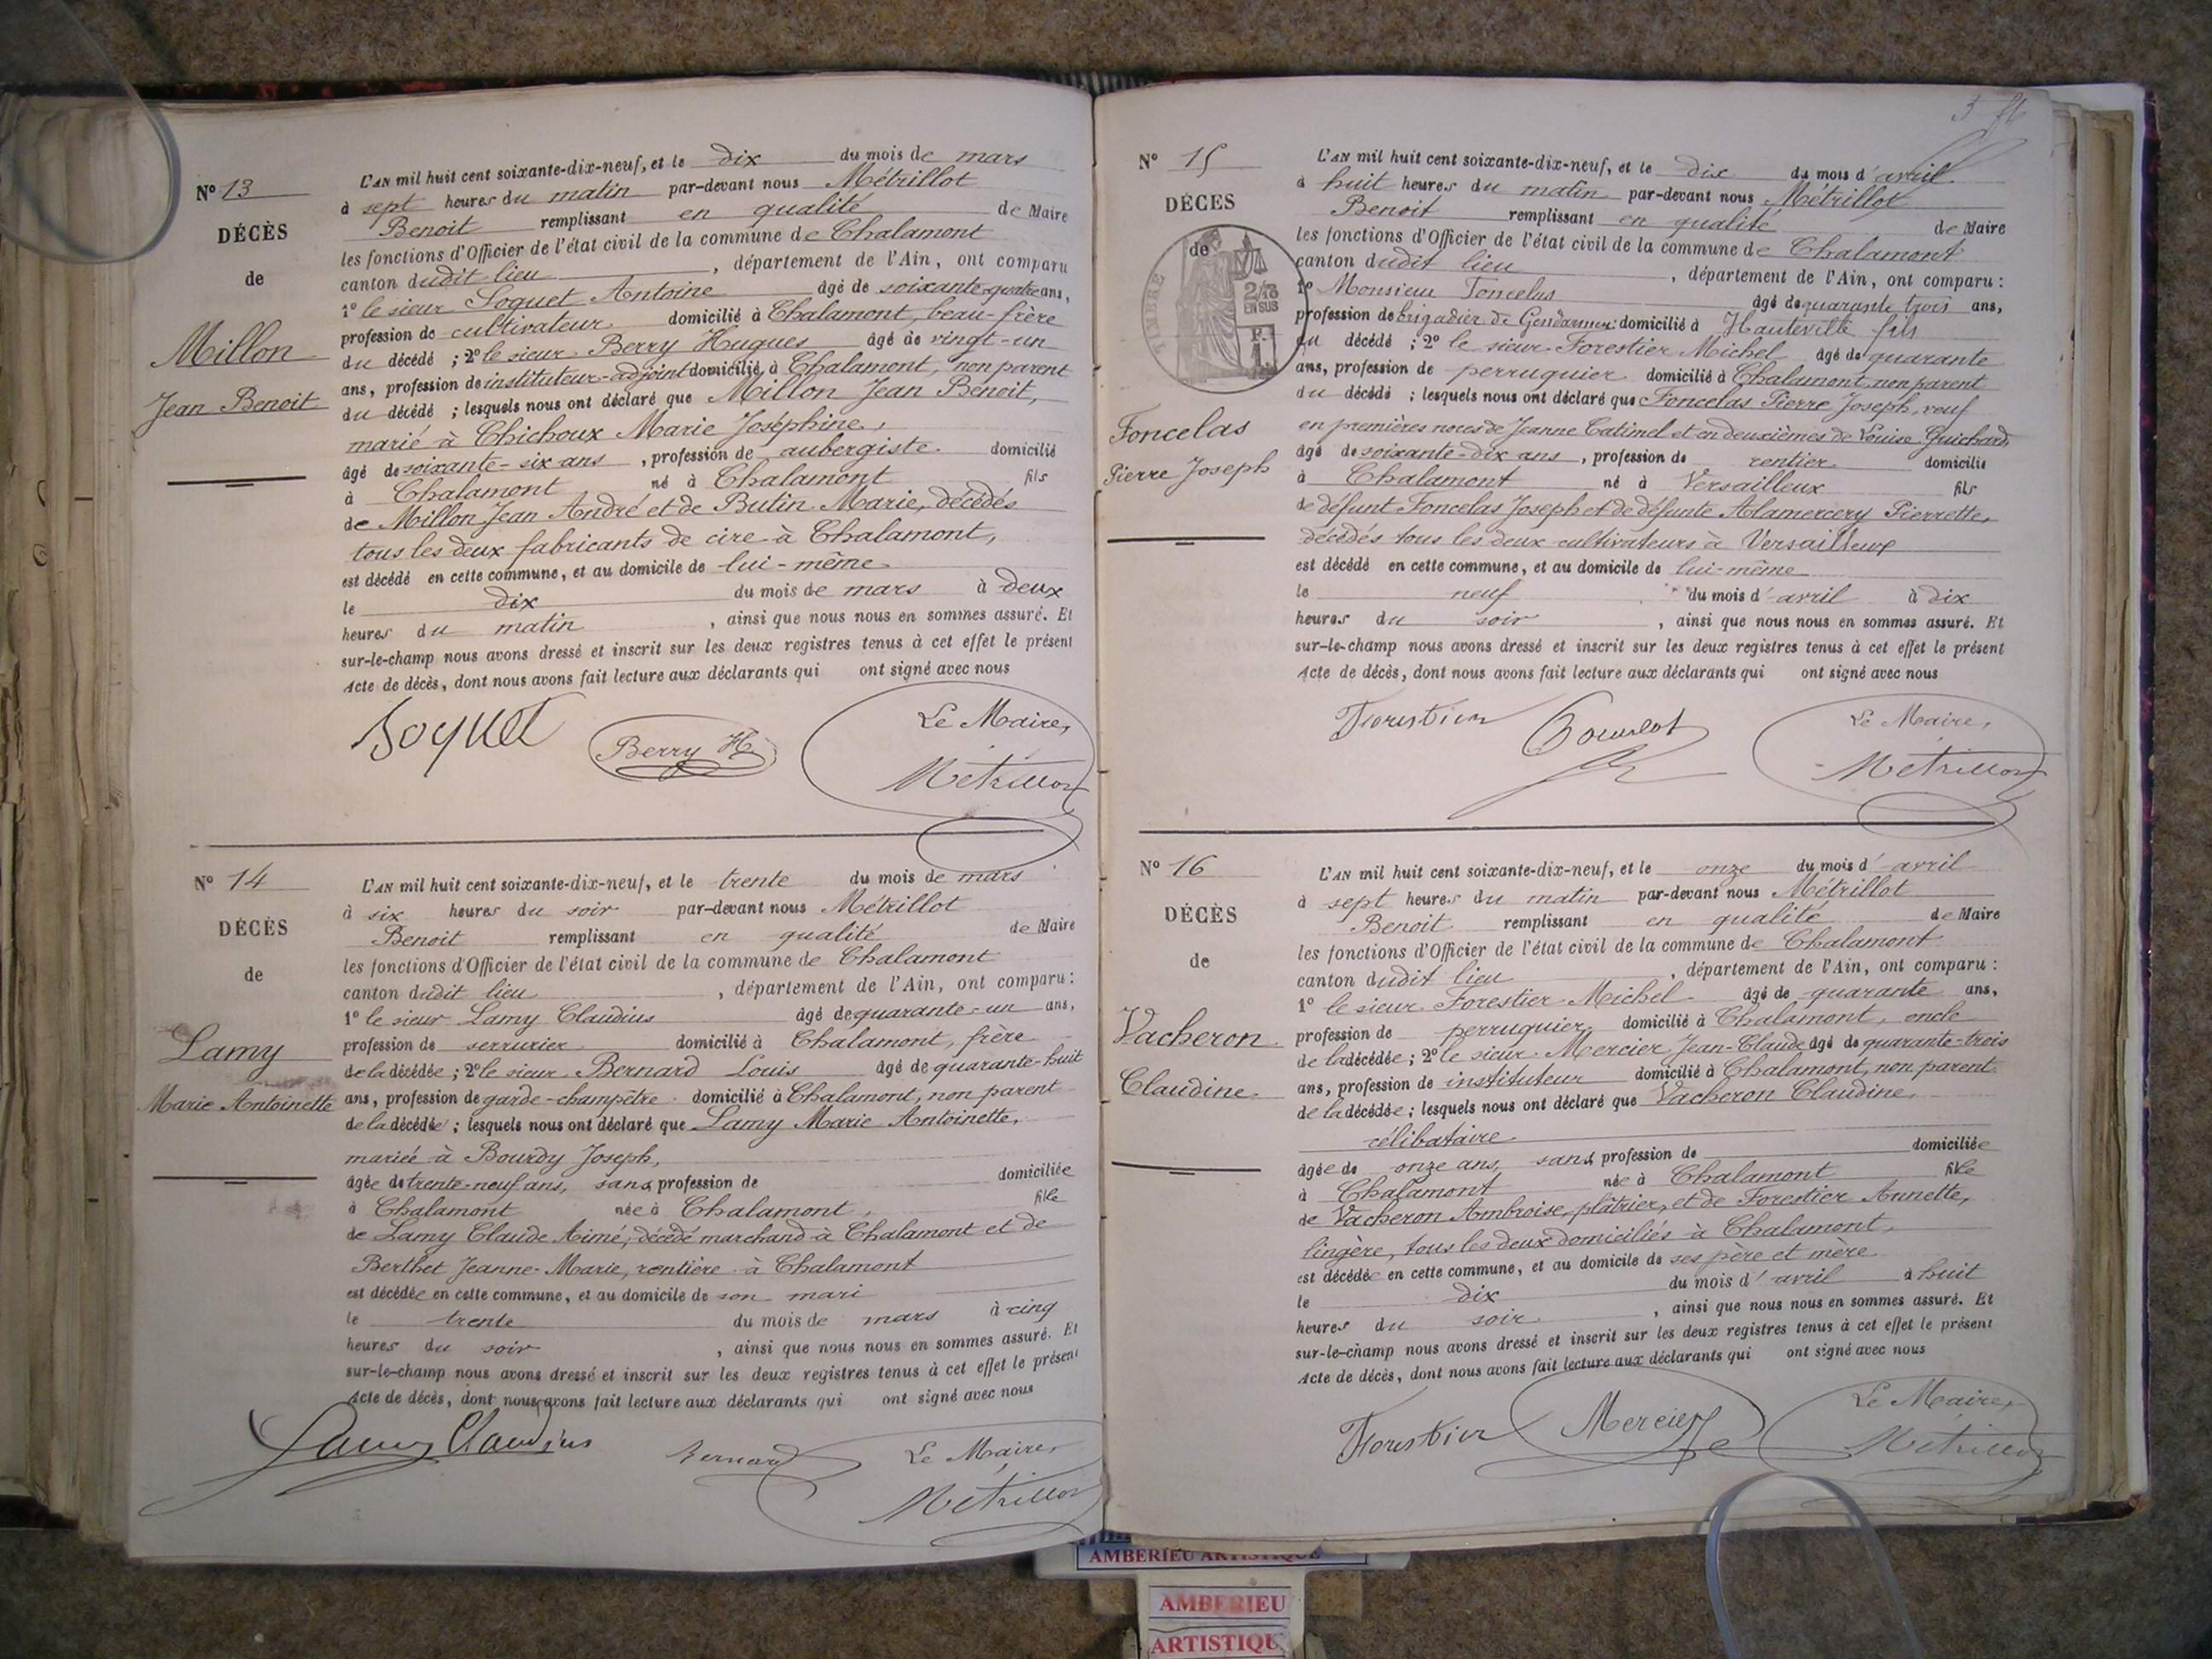 N° 13
DÉCÈS
de
Millon
Jean Benoit
L'AN mil huit cent soixante-dix-neuf, et le dix du mois de mars
à sept heures du matin par-devant nous Métrillot
Benoit remplissant en qualité de Maire
les fonctions d'Officier de l'état civil de la commune de Chalamont
canton dudit lieu, département de l'Ain, ont comparu
1° le sieur Soquet Antoine âgé de soixante-quatre ans,
profession de cultivateur domicilié à Chalamont, beau-frère
du décédé ; 2° le sieur Berry Hugues âgé de vingt-un
ans, profession de instituteur-adjoint domicilié à Chalamont, non parent
du décédé ; lesquels nous ont déclaré que Millon Jean Benoit,
marié à Chichoux Marie Joséphine,
âgé de soixante-six ans, profession de aubergiste domicilié
à Chalamont né à Chalamont fils
de Millon Jean André et de Butin Marie, décédés
tous les deux fabricants de cire à Chalamont,
est décédé en cette commune, et au domicile de lui-même
le dix du mois de mars à deux
heures du matin, ainsi que nous nous en sommes assuré. Et
sur-le-champ nous avons dressé et inscrit sur les deux registres tenus à cet effet le présent
Acte de décès, dont nous avons fait lecture aux déclarants qui ont signé avec nous
Soquet
Berry H
Le Maire,
Métrillot
N° 14
DÉCÈS
de
Lamy
Marie Antoinette
L'AN mil huit cent soixante-dix-neuf, et le trente du mois de mars
à six heures du soir par-devant nous Métrillot
Benoit remplissant en qualité de Maire
les fonctions d'Officier de l'état civil de la commune de Chalamont
canton dudit lieu, département de l'Ain, ont comparu :
1° le sieur Lamy Claudius âgé de quarante-un ans,
profession de serrurier domicilié à Chalamont, frère
de la décédée ; 2° le sieur Bernard Louis âgé de quarante-huit
ans, profession de garde-champêtre domicilié à Chalamont, non parent
de la décédée ; lesquels nous ont déclaré que Lamy Marie Antoinette,
mariée à Bourdy Joseph,
âgée de trente-neuf ans, sans profession de domiciliée
à Chalamont née à Chalamont, fille
de Lamy Claude Aimé, décédé marchand à Chalamont et de
Berthet Jeanne-Marie, rentière à Chalamont
est décédée en cette commune, et au domicile de son mari
le trente du mois de mars à cinq
heures du soir, ainsi que nous nous en sommes assuré. Et
sur-le-champ nous avons dressé et inscrit sur les deux registres tenus à cet effet le présent
Acte de décès, dont nous avons fait lecture aux déclarants qui ont signé avec nous
Lamy Claudius
Bernard
Le Maire,
Métrillot
N° 15
DÉCÈS
de
TIMBRE
2/10
EN SUS
Foncelas
Pierre Joseph
L'AN mil huit cent soixante-dix-neuf, et le dix du mois d'avril
à huit heures du matin par-devant nous Métrillot
Benoit remplissant en qualité de Maire
les fonctions d'Officier de l'état civil de la commune de Chalamont
canton dudit lieu, département de l'Ain, ont comparu :
1° Monsieur Foncelas âgé de quarante trois ans,
profession de brigadier de Gendarmerie domicilié à Hauteville fils
du décédé ; 2° le sieur Forestier Michel âgé de quarante
ans, profession de perruquier domicilié à Chalamont, non parent
du décédé ; lesquels nous ont déclaré que Foncelas Pierre Joseph, veuf
en premières noces de Jeanne Catimel et en deuxièmes de Louise Guichard,
âgé de soixante-dix ans, profession de rentier domicilié
à Chalamont né à Versailleux fils
de défunt Foncelas Joseph et de défunte Alamercery Pierrette,
décédés tous les deux cultivateurs à Versailleux
est décédé en cette commune, et au domicile de lui-même
le neuf du mois d'avril à dix
heures du soir, ainsi que nous nous en sommes assuré. Et
sur-le-champ nous avons dressé et inscrit sur les deux registres tenus à cet effet le présent
Acte de décès, dont nous avons fait lecture aux déclarants qui ont signé avec nous
Forestier
Le Maire,
Métrillot
N° 16
DÉCÈS
de
Vacheron
Claudine
L'AN mil huit cent soixante-dix-neuf, et le onze du mois d'avril
à sept heures du matin par-devant nous Métrillot
Benoit remplissant en qualité de Maire
les fonctions d'Officier de l'état civil de la commune de Chalamont
canton dudit lieu, département de l'Ain, ont comparu :
1° le sieur Forestier Michel âgé de quarante ans,
profession de perruquier domicilié à Chalamont, oncle
de la décédée ; 2° le sieur Mercier Jean-Claude âgé de quarante-trois
ans, profession de instituteur domicilié à Chalamont, non parent
de la décédée ; lesquels nous ont déclaré que Vacheron Claudine,
célibataire
âgée de onze ans, sans profession de domiciliée
à Chalamont née à Chalamont fille
de Vacheron Ambroise, plâtrier, et de Forestier Annette,
lingère, tous les deux domiciliés à Chalamont,
est décédée en cette commune, et au domicile de ses père et mère
le dix du mois d'avril à huit
heures du soir, ainsi que nous nous en sommes assuré. Et
sur-le-champ nous avons dressé et inscrit sur les deux registres tenus à cet effet le présent
Acte de décès, dont nous avons fait lecture aux déclarants qui ont signé avec nous
Forestier
Mercier
Le Maire,
Métrillot
AMBERIEU ARTISTIQUE
AMBERIEU
ARTISTIQU